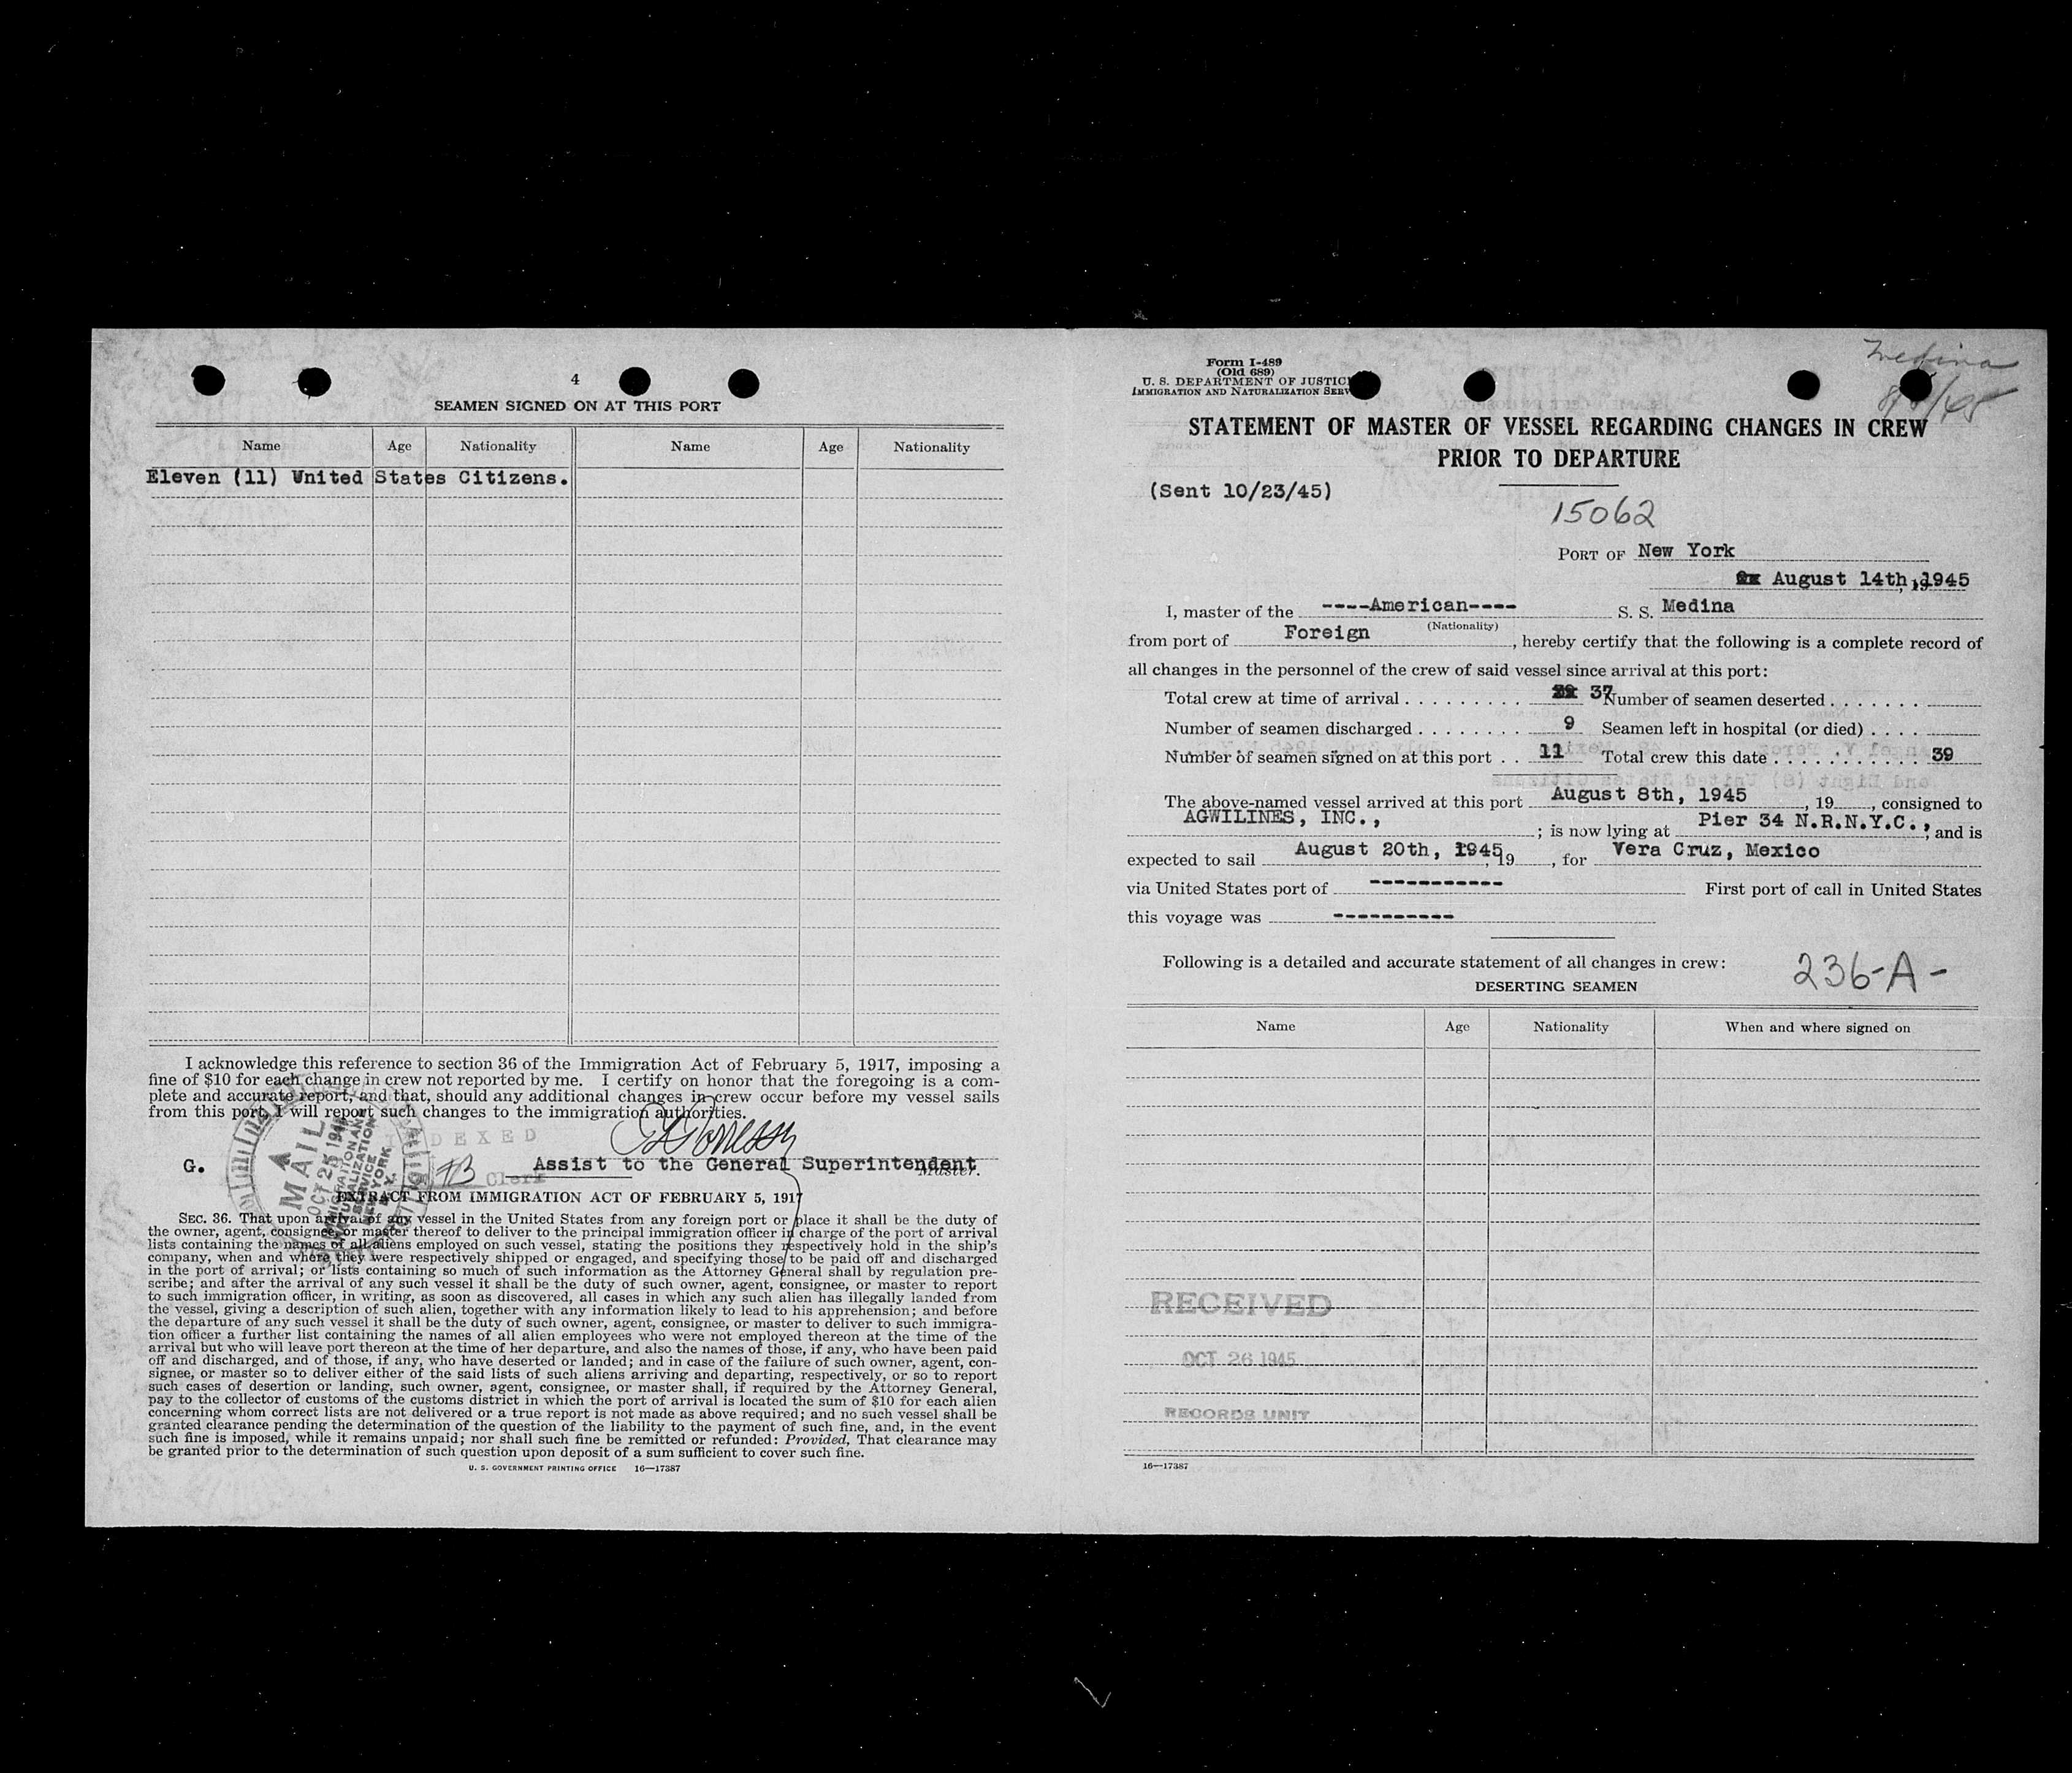 4
SEAMEN SIGNED ON AT THIS PORT
Name Age Nationality Name Age Nationality
Eleven (11) United States Citizens.
I acknowledge this reference to section 36 of the Immigration Act of February 5, 1917, imposing a
fine of $10 for each change in crew not reported by me. I certify on honor that the foregoing is a com-
plete and accurate report, and that, should any additional changes in crew occur before my vessel sails
from this port, I will report such changes to the immigration authorities.
INDEXED
G. Assist to the General Superintendent
Master.
Clerk
MAIL
OCT 25 1945
IMMIGRATION AND
NATURALIZATION
SERVICE
NEW YORK
N.Y.
EXTRACT FROM IMMIGRATION ACT OF FEBRUARY 5, 1917
SEC. 36. That upon arrival of any vessel in the United States from any foreign port or place it shall be the duty of
the owner, agent, consignee, or master thereof to deliver to the principal immigration officer in charge of the port of arrival
lists containing the names of all aliens employed on such vessel, stating the positions they respectively hold in the ship's
company, when and where they were respectively shipped or engaged, and specifying those to be paid off and discharged
in the port of arrival; or lists containing so much of such information as the Attorney General shall by regulation pre-
scribe; and after the arrival of any such vessel it shall be the duty of such owner, agent, consignee, or master to report
to such immigration officer, in writing, as soon as discovered, all cases in which any such alien has illegally landed from
the vessel, giving a description of such alien, together with any information likely to lead to his apprehension; and before
the departure of any such vessel it shall be the duty of such owner, agent, consignee, or master to deliver to such immigra-
tion officer a further list containing the names of all alien employees who were not employed thereon at the time of the
arrival but who will leave port thereon at the time of her departure, and also the names of those, if any, who have been paid
off and discharged, and of those, if any, who have deserted or landed; and in case of the failure of such owner, agent, con-
signee, or master so to deliver either of the said lists of such aliens arriving and departing, respectively, or so to report
such cases of desertion or landing, such owner, agent, consignee, or master shall, if required by the Attorney General,
pay to the collector of customs of the customs district in which the port of arrival is located the sum of $10 for each alien
concerning whom correct lists are not delivered or a true report is not made as above required; and no such vessel shall be
granted clearance pending the determination of the question of the liability to the payment of such fine, and, in the event
such fine is imposed, while it remains unpaid; nor shall such fine be remitted or refunded: Provided, That clearance may
be granted prior to the determination of such question upon deposit of a sum sufficient to cover such fine.
U. S. GOVERNMENT PRINTING OFFICE 16—17387
Form I-489
(Old 689)
U. S. DEPARTMENT OF JUSTIC
IMMIGRATION AND NATURALIZATION SERV
Medina
STATEMENT OF MASTER OF VESSEL REGARDING CHANGES IN CREW
PRIOR TO DEPARTURE
(Sent 10/23/45)
15062
PORT OF New York
August 14th, 1945
I, master of the ----American---- S. S. Medina
(Nationality)
from port of Foreign, hereby certify that the following is a complete record of
all changes in the personnel of the crew of said vessel since arrival at this port:
Total crew at time of arrival . . . . . . . . . 37 Number of seamen deserted . . . . . . .
Number of seamen discharged . . . . . . . . 9 Seamen left in hospital (or died) . . . .
Number of seamen signed on at this port . . 11 Total crew this date . . . . . . . . . . . 39
The above-named vessel arrived at this port August 8th, 1945, 19, consigned to
AGWILINES, INC., ; is now lying at Pier 34 N.R.N.Y.C., and is
expected to sail August 20th, 1945, 19, for Vera Cruz, Mexico
via United States port of ----------- First port of call in United States
this voyage was ----------
Following is a detailed and accurate statement of all changes in crew:
236-A-
DESERTING SEAMEN
Name Age Nationality When and where signed on
RECEIVED
OCT 26 1945
RECORDS UNIT
16—17387